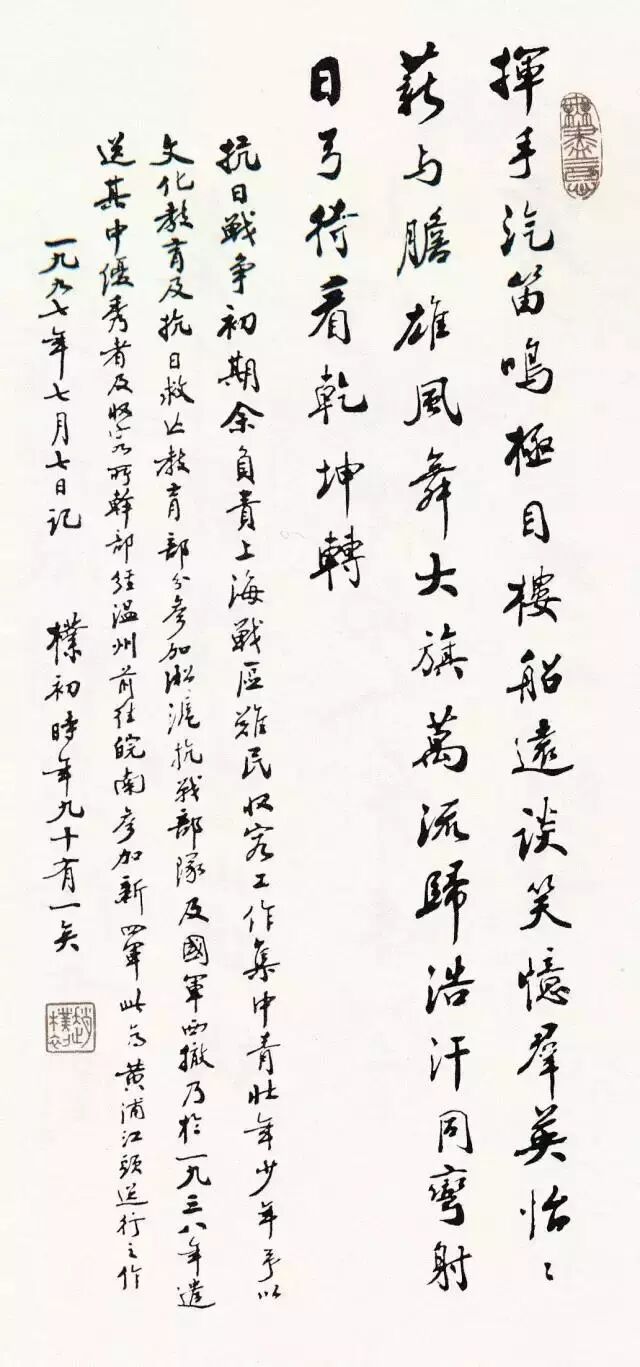 無盡意
揮手汽笛鳴極目樓船遠談笑憶羣英怡〻
薪与膽雄風舞大旗萬流歸浩汗同彎射
日弓待看乾坤轉
抗日戰争初期余負責上海戰区難民收容工作集中青壯年少年予以
文化教育及抗日救亡教育部分參加淞滬抗战部隊及國軍西撤乃於一九三八年遣
送其中優秀者及收容所幹部經温州前往皖南參加新四軍此為黄浦江頭送行之作
一九九七年七月七日記 樸初時年九十有一矣
趙樸初